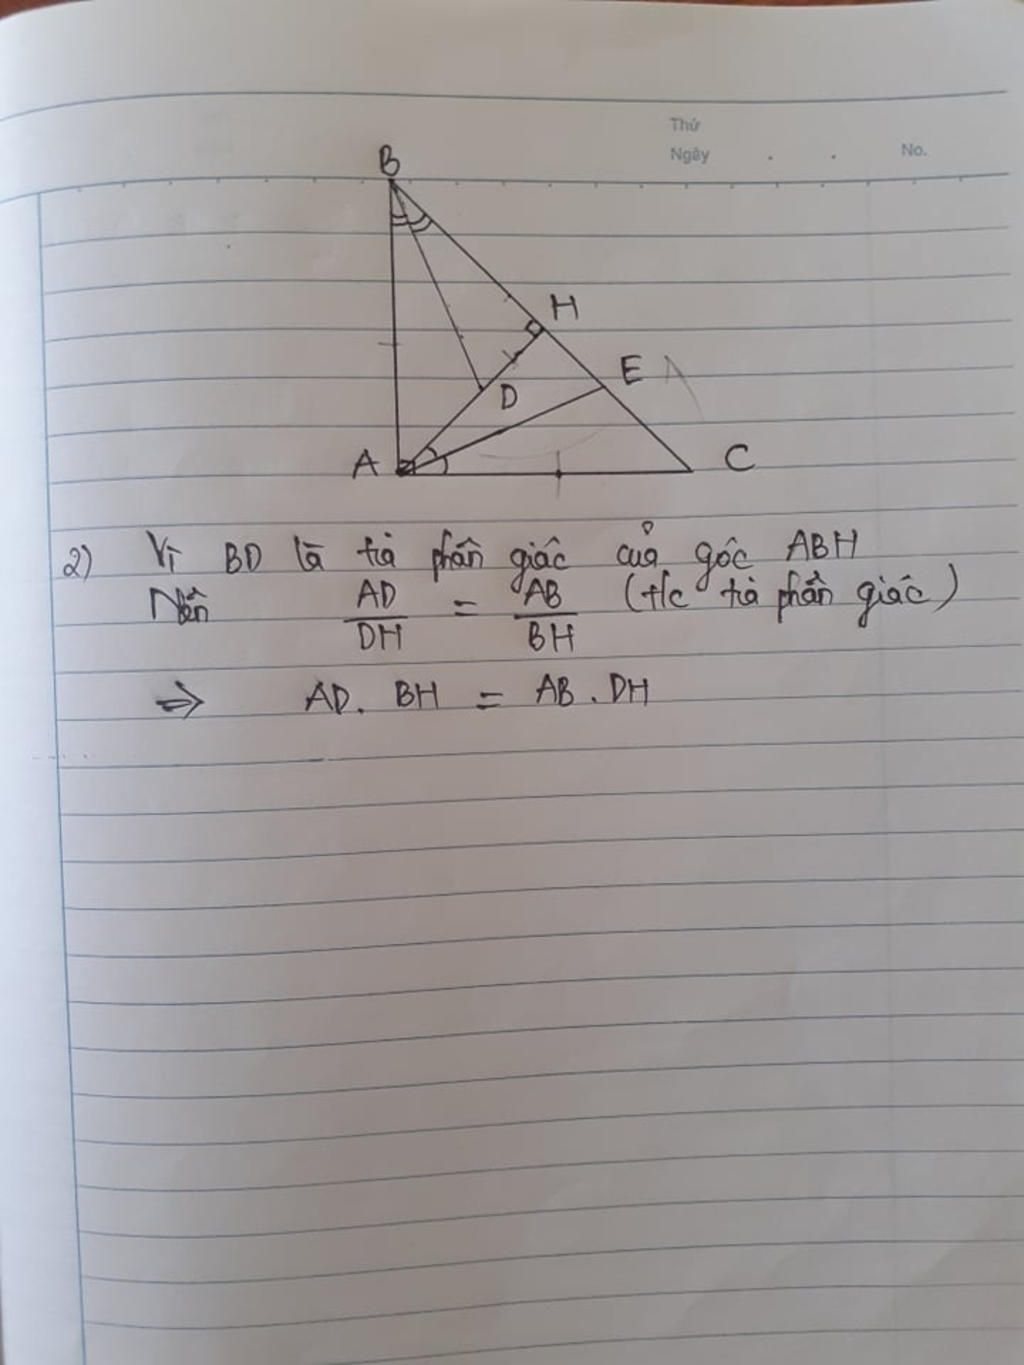 Thứ
Ngày . . No.
B
H
E
D
A
C
2) Vì BD là tia phân giác của góc ABH
Nên AD/DH = AB/BH (t/c tia phân giác)
⇒ AD. BH = AB. DH